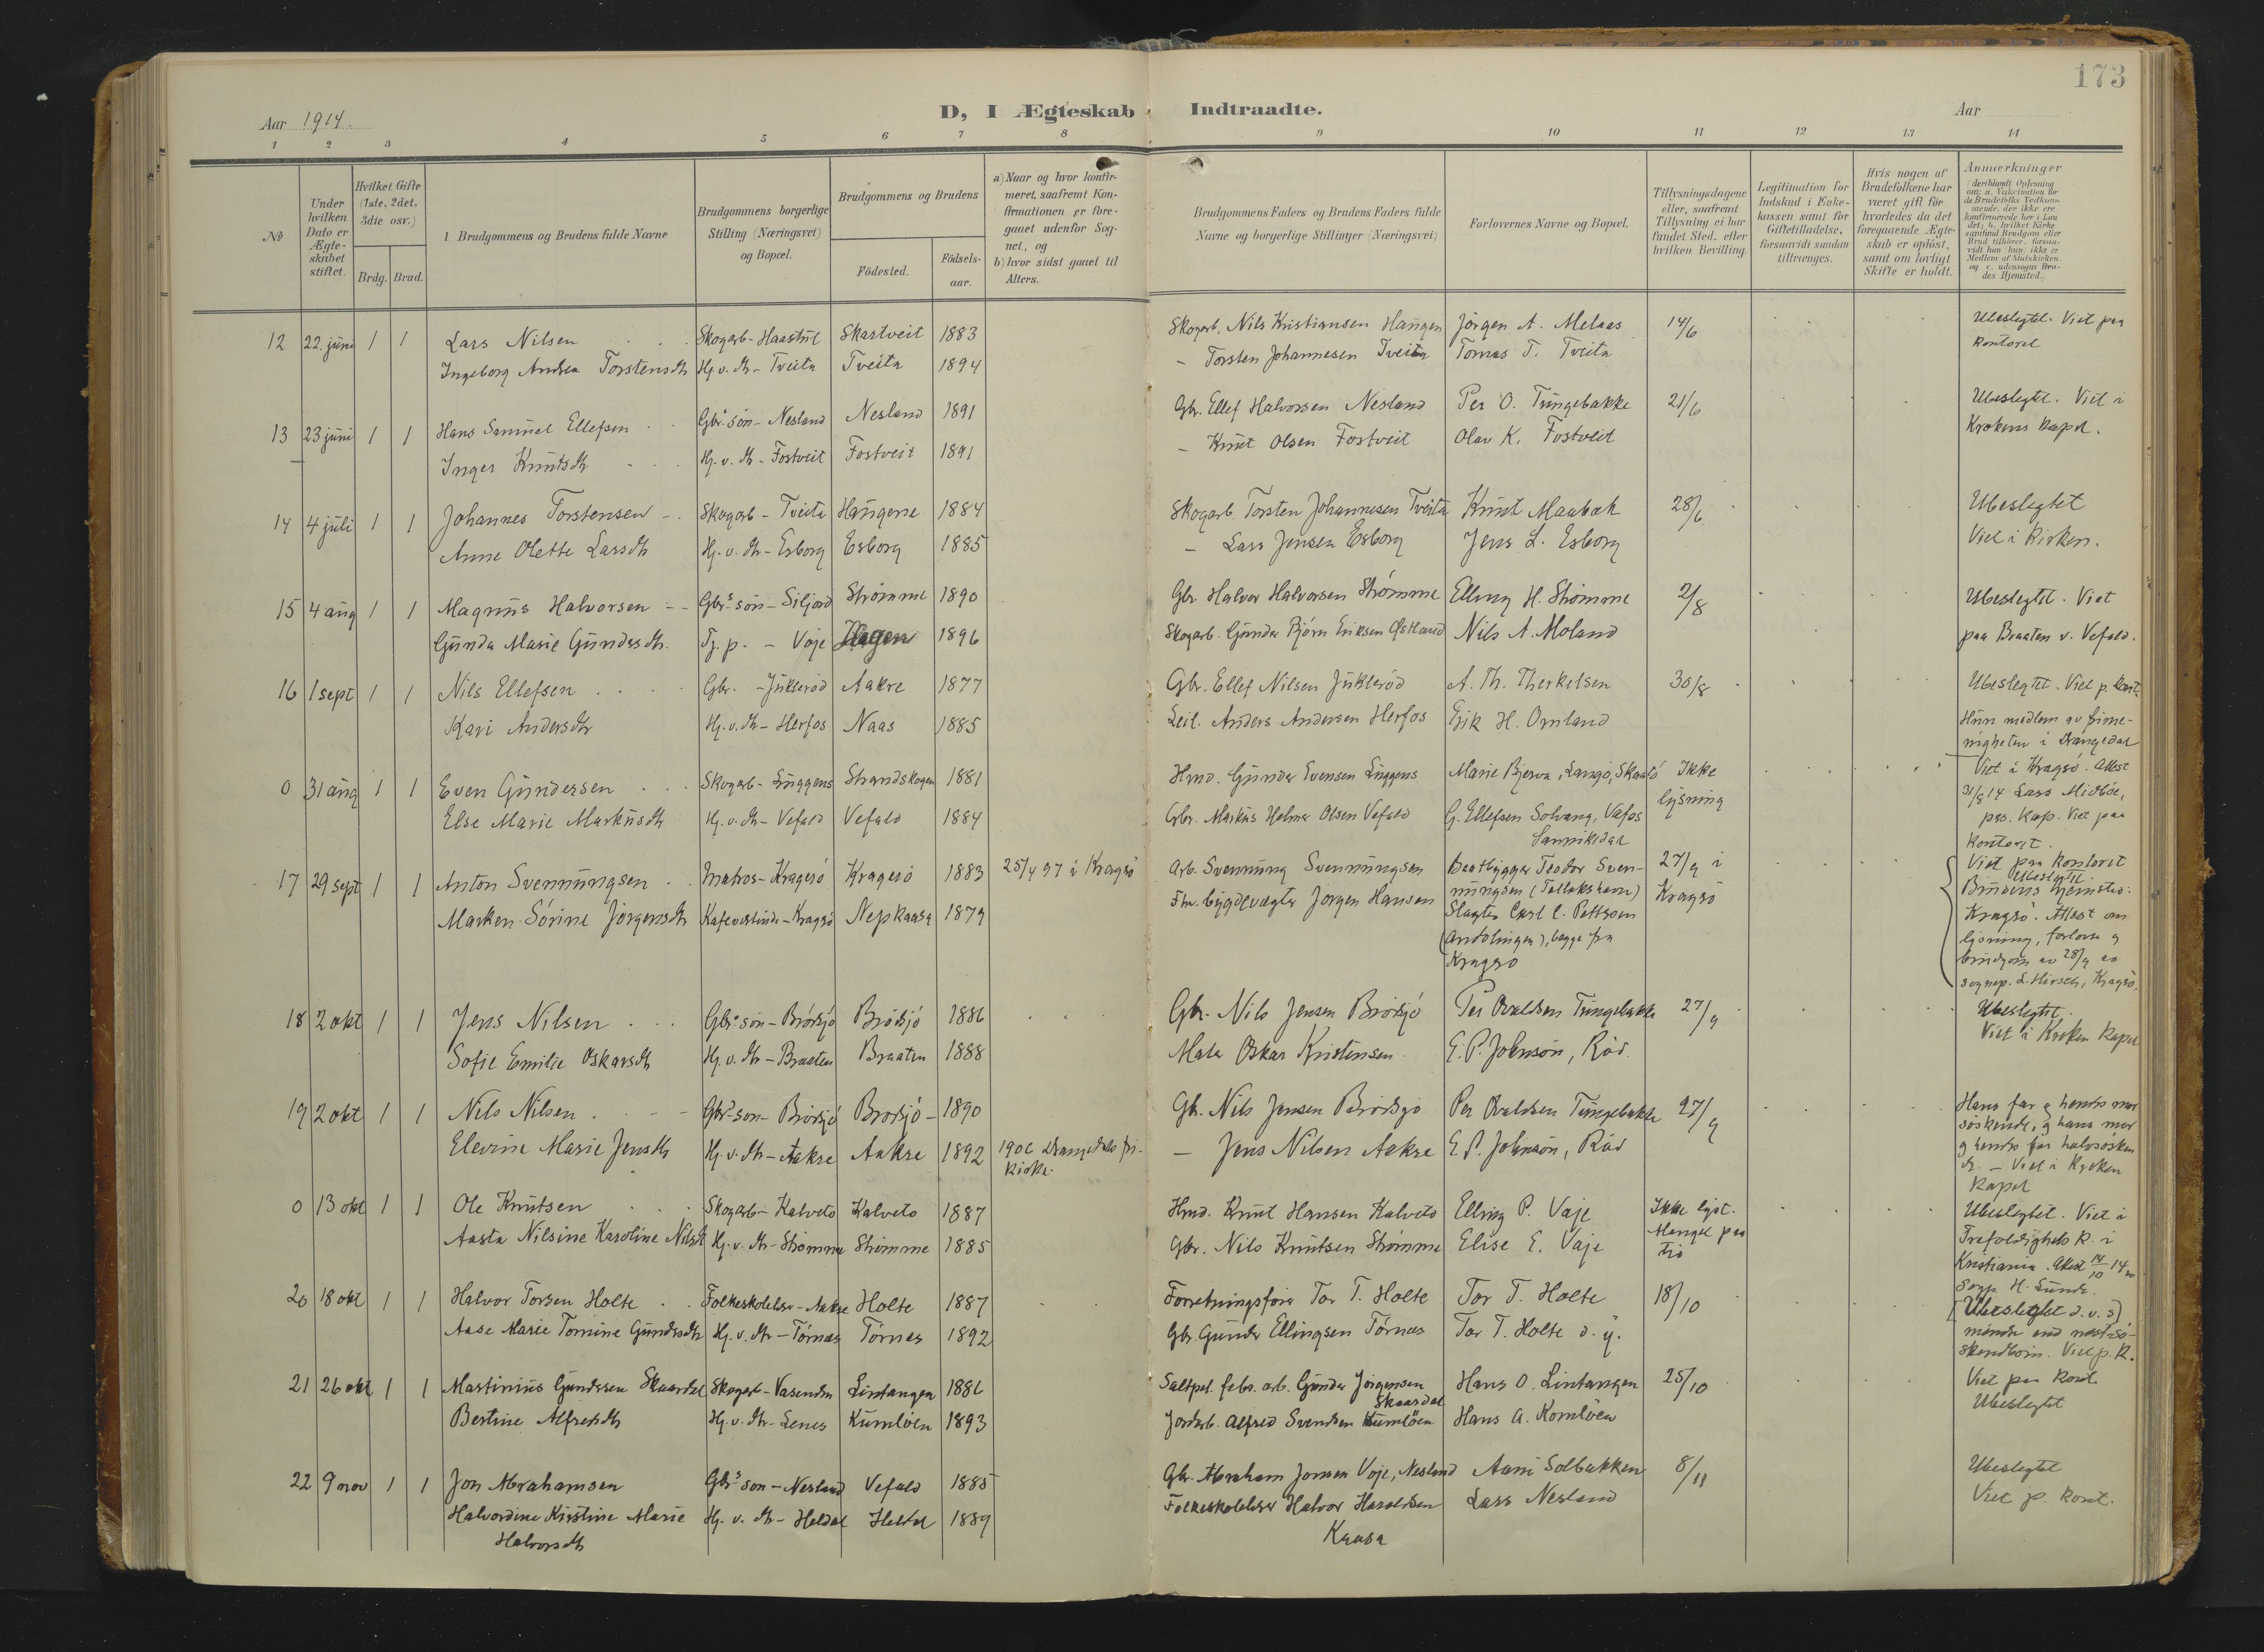 173
Aar 1914.
D, I Ægteskab Indtraadte.
Aar
1 2 3 4 5 6 7 8 9 10 11 12 13 14
No
Under hvilken Dato er Ægte-skabet stiftet.
Hvilket Gifte (1ste, 2det, 3die osv.)
Brdg. Brud.
1. Brudgommens og Brudens fulde Navne
Brudgommens borgerlige Stilling (Næringsvei) og Bopæl.
Brudgommens og Brudens
Födested.
Födsels-aar.
a) Naar og hvor konfir-meret, saafremt Kon-firmationen er fore-gaaet udenfor Sog-net, og
b) hvor sidst gaaet til Alters.
Brudgommens Faders og Brudens Faders fulde Navne og borgerlige Stillinger (Næringsvei)
Forlovernes Navne og Bopæl.
Tillysningsdagene eller, saafremt Tillysning ei har fundet Sted, efter hvilken Bevilling.
Legitimation for Indskud i Enke-kassen samt for Giftetilladelse, forsaavidt saadan tiltrænges.
Hvis nogen af Brudefolkene har været gift för hvorledes da det foregaaende Ægte-skab er oplöst, samt om lovligt Skifte er holdt.
Anmærkninger
12 22. juni 1 1 Lars Nilsen Skogarb - Haastul Skartveit 1883 Skogarb. Nils Kristiansen Haugen Jörgen A. Melaas 14/6 Ubeslegtet. Viet paa
Ingeborg Andrea Torstensdtr Hj. v. dtr - Tveita Tveita 1894 - Torsten Johannesen Tveita Tomas T. Tveita kontoret
13 23 juni 1 1 Hans Samuel Ellefsen Gbrs sön - Nesland Nesland 1891 Gbr. Ellef Halvorsen Nesland Per O. Tungebakke 21/6 Ubeslegtet. Viet i
Inger Knutsdtr Hj. v. dtr - Fostveit Fostveit 1891 - Knut Olsen Fostveit Olav K. Fostveit Krokens kapel.
14 4 juli 1 1 Johannes Torstensen Skogarb - Tveita Haugene 1884 Skogarb. Torsten Johannesen Tveita Knut Maabæk 28/6 Ubeslegtet
Anne Olette Larsdtr Hj. v. dtr - Esborg Esborg 1885 - Lars Jensen Esborg Jens L. Esborg Viet i kirken.
15 4 aug 1 1 Magnus Halvorsen Gbrs sön - Siljord Strömme 1890 Gbr. Halvor Halvorsen Strömme Elling H. Strömme 2/8 Ubeslegtet. Viet
Gunda Marie Gundersdtr. Tj. p. - Voje Hagen 1896 Skogarb. Gunder Björn Eriksen Östland Nils A. Moland paa Braaten v. Vefald.
16 1 sept 1 1 Nils Ellefsen Gbr. - Jukleröd Aakre 1877 Gbr. Ellef Nilsen Jukleröd A. Th. Therkelsen 30/8 Ubeslegtet. Viet p. kont.
Kari Andersdtr Hj. v. dtr - Herfos Naas 1885 Leil. Anders Andersen Herfos Erik H. Ornland Hun medlem av frime-
nigheten i Drangedal
0 31 aug 1 1 Even Gundersen Skogarb - Luggens Strandskogen 1881 Hmd. Gunder Evensen Luggens Marie Bjerva, Langö, Skaatö Ikke Viet i Kragerö. Attest
Else Marie Markusdtr Hj. v. dtr - Vefald Vefald 1884 Gbr. Markus Helmer Olsen Vefald G. Ellefsen Solvang, Vafos lysning 31/8 14 Lars Midböe,
Sannikedal pers. kap. Viet paa
kontoret.
17 29 sept 1 1 Anton Svennungsen Matros - Kragerö Kragerö 1883 25/4 97 i Kragerö Arb. Svennung Svennungsen Baatbygger Teodor Sven- 27/9 i Viet paa kontoret
Ubeslegtet.
Maren Sörine Jörgensdtr Kafevertinde - Kragerö Nepkaasa 1879 Fhv. bygdevægter Jörgen Hansen nungsen (Tallakshavn) Kragerö Brudens hjemsted:
Slagter Carl C. Petterson Kragerö. Attest om
begge fra lysning, forlovere og
Kragerö brudgom av 28/9 av
sognep. L. Hirsch, Kragerö.
18 2 okt 1 1 Jens Nilsen Gbrs sön - Brödsjö Brödsjö 1886 Gbr. Nils Jensen Brödsjö Per Ovaldsen Tungebakke 27/9 Ubeslegtet.
Sofie Emilie Oskarsdtr Hj. v. dtr - Braaten Braaten 1888 Maler Oskar Kristensen E. P. Johnson, Röd. Viet i Kroken kapel
19 2 okt 1 1 Nils Nilsen Gbrs sön - Brödsjö Brödsjö 1890 Gbr. Nils Jensen Brödsjö Per Ovaldsen Tungebakke 27/9 Hans far og hendes mor
söskende, og hans mor
Elevine Marie Jensdtr Hj. v. dtr - Aakre Aakre 1892 1906 Drangedals fri- - Jens Nilsen Aakre E. P. Johnson, Röd og hendes far halvsösken
kirke. de. - Viet i Kroken
kapel
0 13 okt 1 1 Ole Knutsen Skogarb - Kalveto Kalveto 1887 Hmd. Knut Hansen Kalveto Elling P. Vaje Ikke lyst. Ubeslegtet. Viet i
Aasta Nilsine Karoline Nilsdtr Hj. v. dtr - Strömme Strömme 1885 Gbr. Nils Knutsen Strömme Elise E. Vaje Mangel paa Trefoldigheds k. i
tid Kristiania. Attest 14/10 14 av
Sogp. H. Sunde.
20 18 okt 1 1 Halvor Torsen Holte Folkeskolelærer - Aakre Holte 1887 Forretningsförer Tor T. Holte Tor T. Holte 18/10 [Ubeslegtet d. v. s]
Aase Marie Tomine Gundersdtr Hj. v. dtr - Törnes Törnes 1892 Gbr. Gunder Ellingsen Törnes Tor T. Holte d. y. mindre end næst-sö-
skendbörn. Viet p. k.
21 26 okt 1 1 Martinius Gundersen Skaardal Skogarb - Vasenden Lintangen 1886 Saltpet. fabr. arb. Gunder Jörgensen Hans O. Lintangen 25/10 Viet paa kont
Skaardal Ubeslegtet
Bertine Alfredsdtr Hj. v. dtr - Lenes Kumlöen 1893 Jordarb. Alfred Svendsen Kumlöen Hans A. Komlöen
22 9 nov 1 1 Jon Abrahamsen Gbrs sön - Nesland Vefald 1885 Gbr. Abraham Jonsen Voje, Nesland Aani Solbakken 8/11 Ubeslegtet
Halvordine Kirstine Marie Hj. v. dtr - Heldal Heldal 1889 Folkeskolelærer Halvor Haraldsen Lars Nesland Viet p. kont.
Halvorsdtr Kaasa